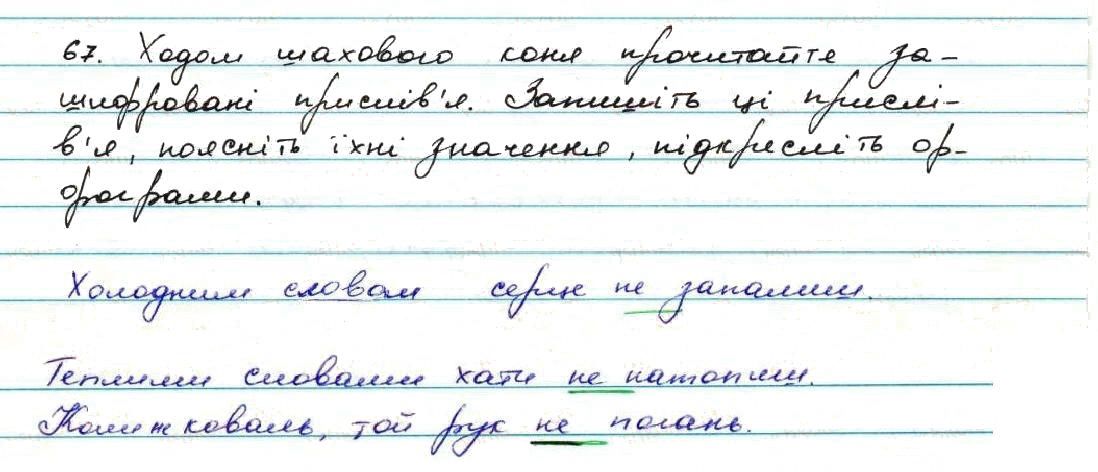 67. Ходом шахового коня прочитайте за-
шифровані прислів'я. Запишіть ці прислі-
в'я, поясніть їхні значення, підкресліть ор-
фограми.
Холодним словом серце не запалиш.
Теплими словами хати не натопиш.
Коли ж коваль, той рук не погань.